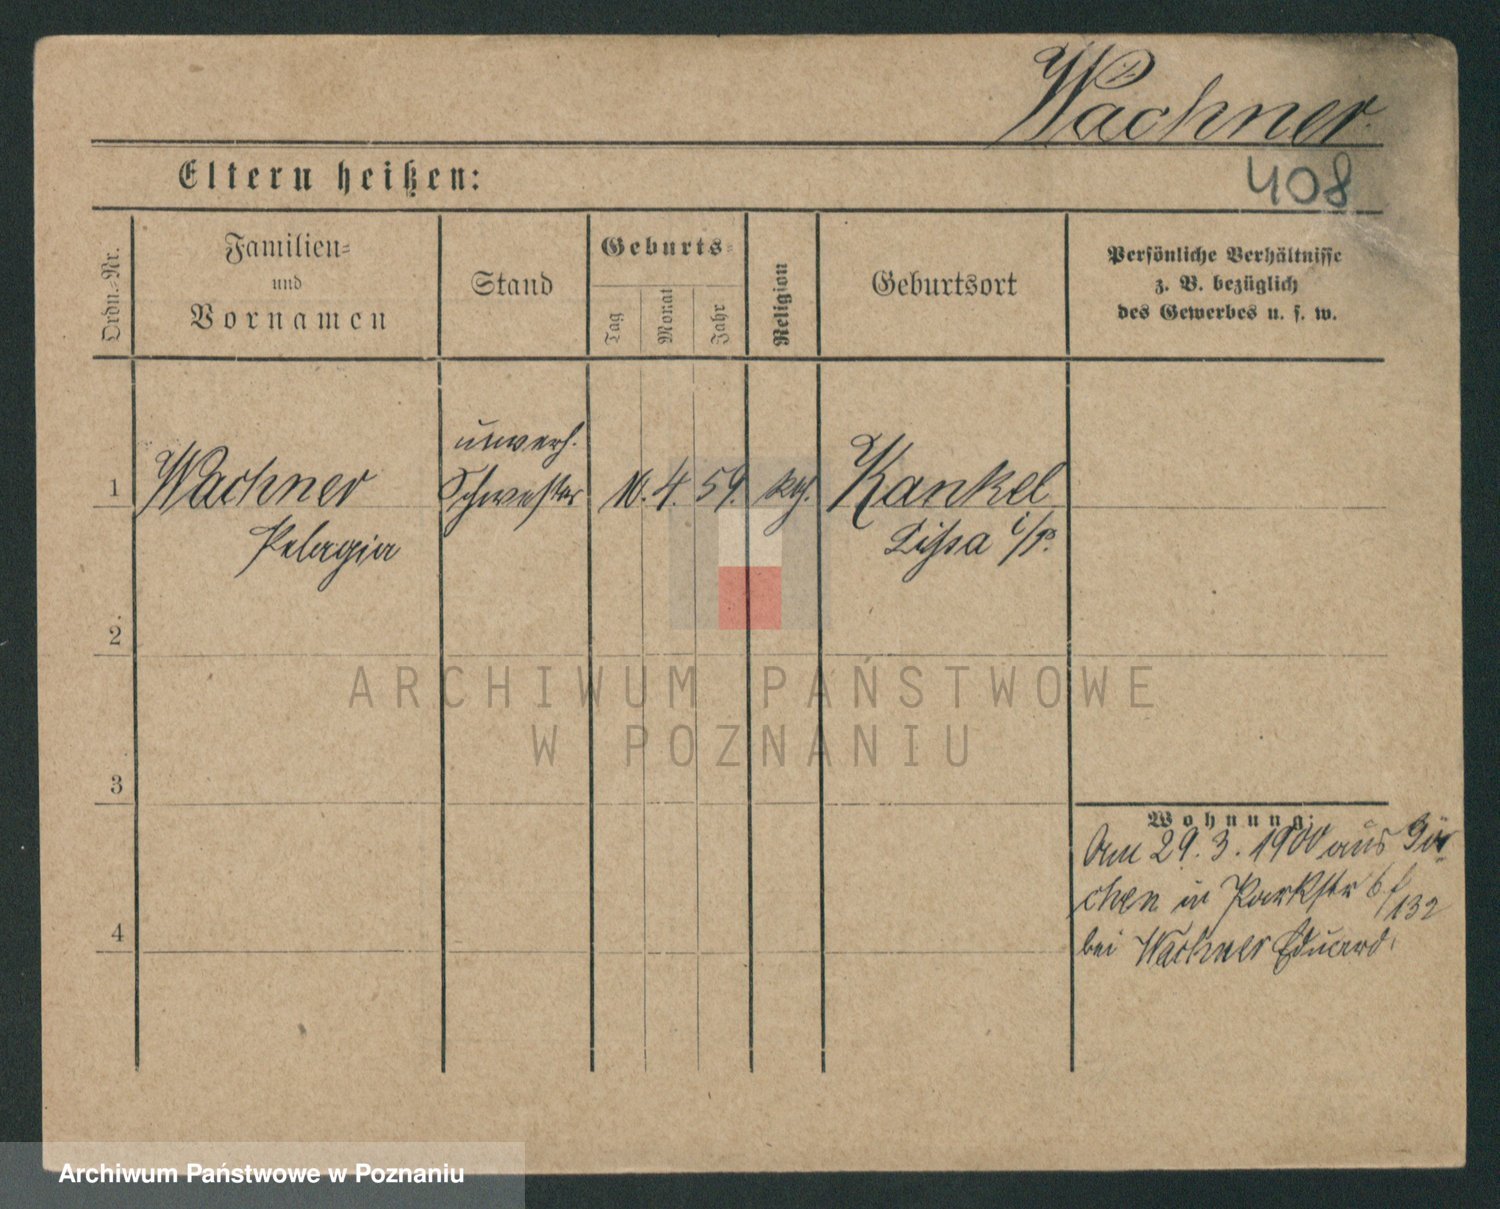 Wachner
Eltern heißen:
408
Ordn.-Nr.
Familien-
und
Vornamen
Stand
Geburts-
Tag
Monat
Jahr
Religion
Geburtsort
Persönliche Verhältnisse
z. B. bezüglich
des Gewerbes u. s. w.
1
Wachner
Pelagia
unverh.
Schwester
10. 4. 59.
kth.
Kankel
Lissa i/P.
2
3
4
Wohnung:
Am 29. 3. 1900 aus Gör
chen in Parkstr 6 f/132
bei Wachner Eduard.
ARCHIWUM PAŃSTWOWE
W POZNANIU
Archiwum Państwowe w Poznaniu